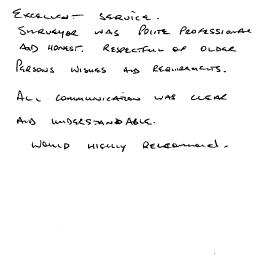 EXCELLENT SERVICE.
SURVEYOR WAS POLITE PROFESSIONAL
AND HONEST. RESPECTFUL OF OLDER
PERSONS WISHES AND REQUIREMENTS.
ALL COMMUNICATION WAS CLEAR
AND UNDERSTANDABLE.
WOULD HIGHLY RECOMMEND.